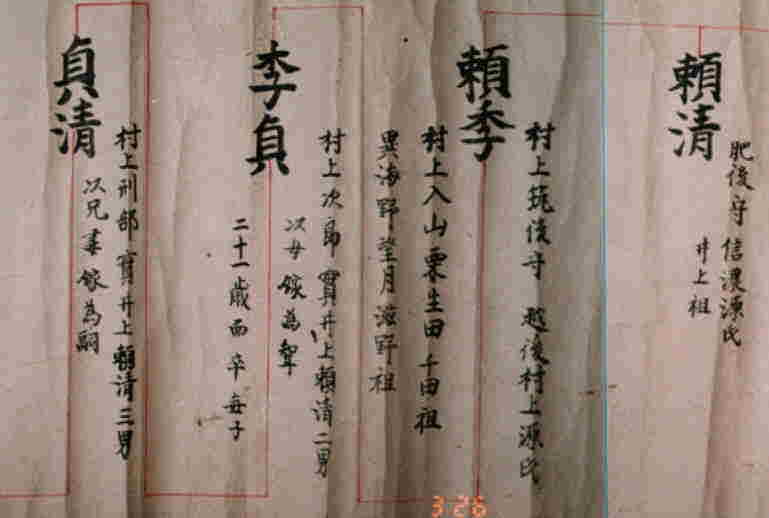 頼清
肥後守 信濃源氏
井上祖
頼季
村上筑後守 越後村上源氏
村上入山粟生田千田祖
異海野望月滋野祖
季貞
村上次郎實井上頼清二男
次母嫁為聟
二十一歳而卒毎子
貞清
村上刑部實井上頼清三男
以兄妻嫁為嗣
3 26